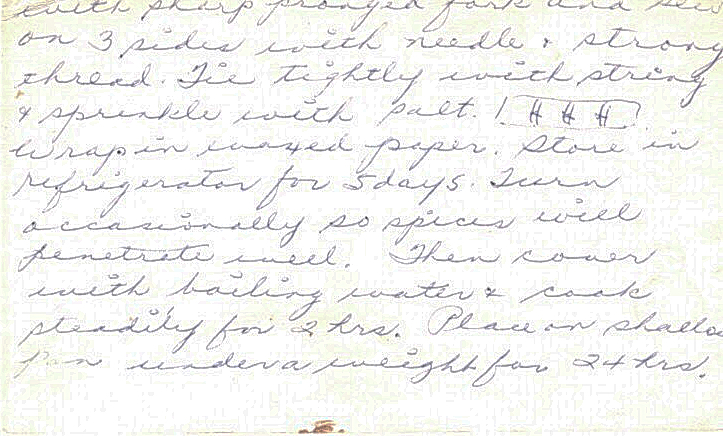 with sharp pronged fork and sew
on 3 sides with needle & strong
thread. Tie tightly with string
& sprinkle with salt.
Wrap in waxed paper. Store in
refrigerator for 5 days. Turn
occasionally so spices will
penetrate well. Then cover
with boiling water & cook
steadily for 2 hrs. Place on shallow
pan under a weight for 24 hrs.